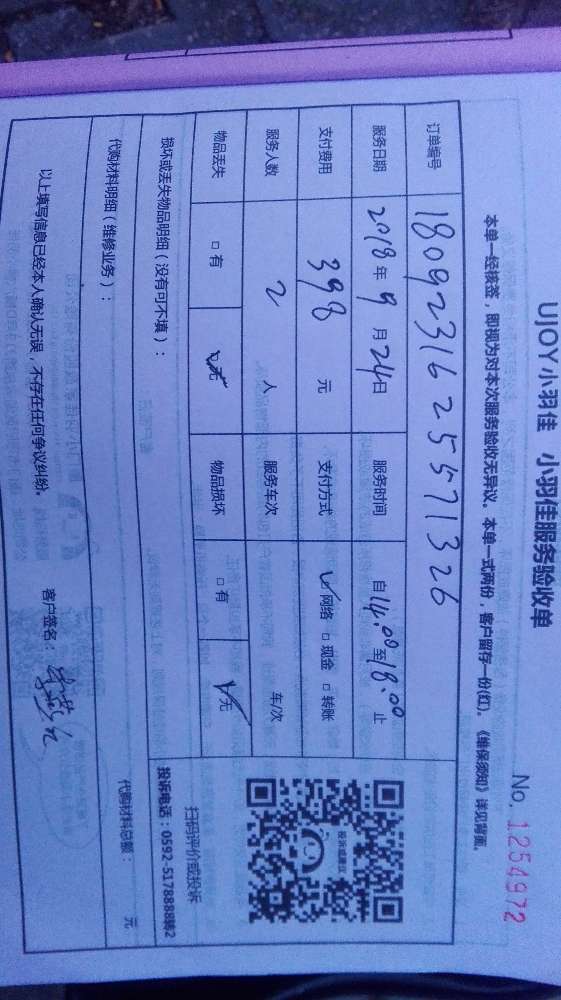 UJOY小羽佳 小羽佳服务验收单
No. 1254972
本单一经核签，即视为对本次服务验收无异议。本单一式两份，客户留存一份(红)。《维保须知》详见背面。
订单编号 1809231625571326
服务日期 2018年9月24日 服务时间 自14:00至18:00止
支付费用 398 元 支付方式 ✓网络 □现金 □转账
服务人数 2 人 服务车次 车/次
物品丢失 □有 ☑无 物品损坏 □有 ☑无
损坏或丢失物品明细（没有可不填）：
投诉或建议
扫码评价或投诉
投诉电话：0592-5178888转2
代购材料明细（维修业务）： 代购材料总额： 元
以上填写信息已经本人确认无误，不存在任何争议纠纷。 客户签名：